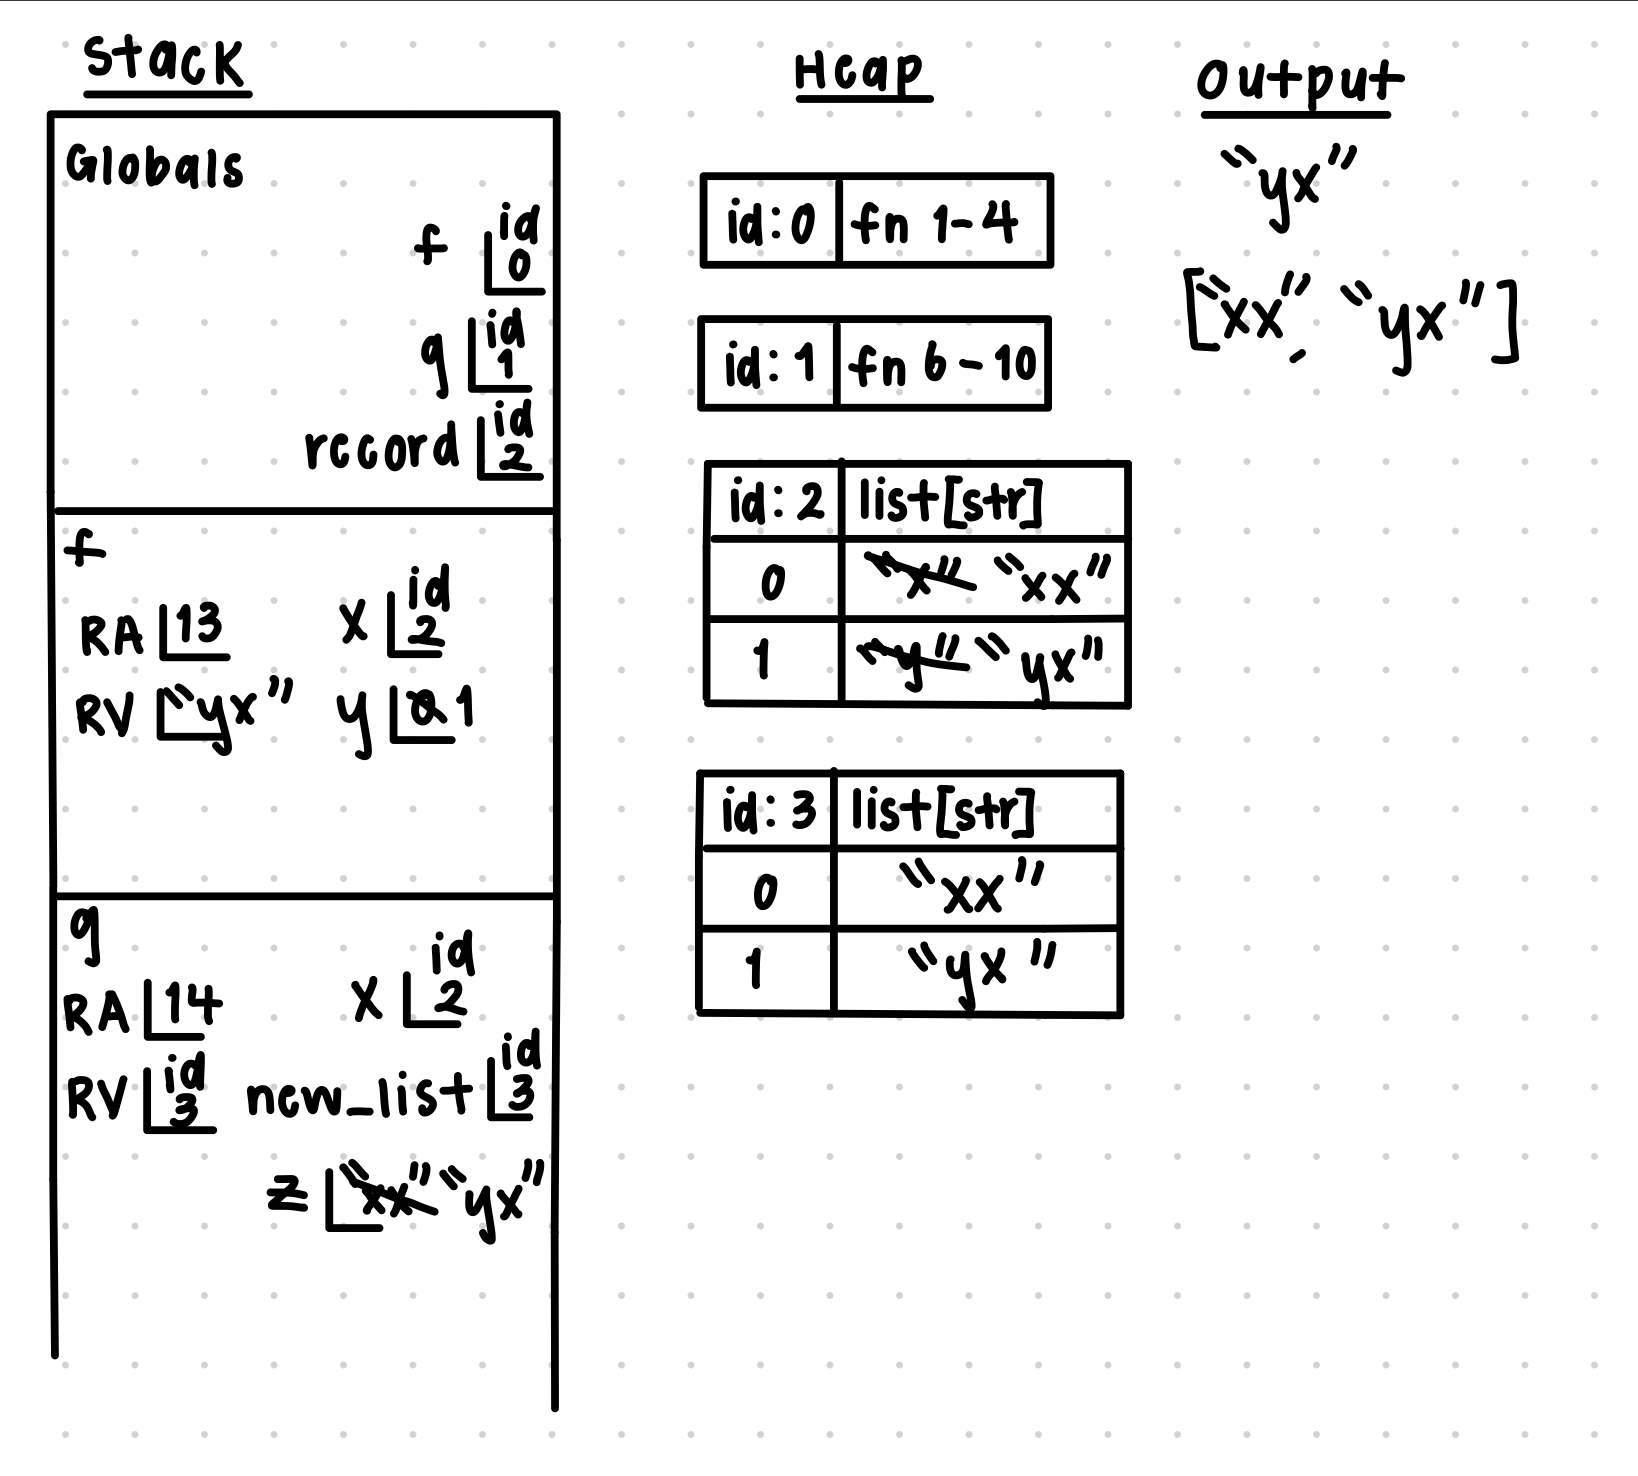 Stack
Globals
f id 0
g id 1
record id 2
f
RA 13 x id 2
RV "yx" y 0 1
g
RA 14 x id 2
RV id 3 new_list id 3
z "xx" "yx"
Heap
id: 0 fn 1-4
id: 1 fn 6-10
id: 2 list[str]
0 "x" "xx"
1 "y" "yx"
id: 3 list[str]
0 "xx"
1 "yx"
Output
"yx"
["xx", "yx"]